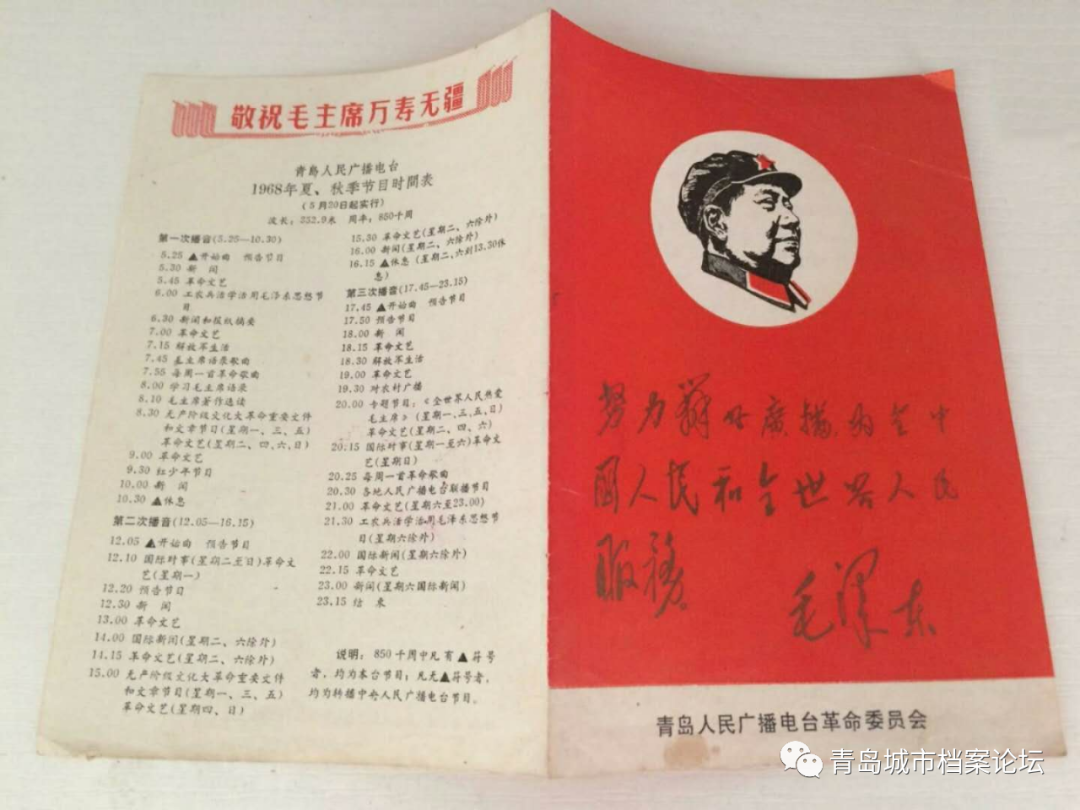 敬祝毛主席万寿无疆
青岛人民广播电台
1968年夏、秋季节目时间表
(5月20日起实行)
波长:352.9米 周率:850千周
第一次播音(5.25—10.30)
5.25 ▲开始曲 预告节目
5.30 新 闻
5.45 革命文艺
6.00 工农兵活学活用毛泽东思想节
目
6.30 新闻和报纸摘要
7.00 革命文艺
7.15 解放军生活
7.45 毛主席语录歌曲
7.55 每周一首革命歌曲
8.00 学习毛主席语录
8.10 毛主席著作选读
8.30 无产阶级文化大革命重要文件
和文章节目(星期一、三、五)
革命文艺(星期二、四、六、日)
9.00 革命文艺
9.30 红少年节目
10.00 新 闻
10.30 ▲休息
第二次播音(12.05—16.15)
12.05 ▲开始曲 预告节目
12.10 国际时事(星期二至日)革命文
艺(星期一)
12.20 预告节目
12.30 新 闻
13.00 革命文艺
14.00 国际新闻(星期二、六除外)
14.15 革命文艺(星期二、六除外)
15.00 无产阶级文化大革命重要文件
和文章节目(星期一、三、五)
革命文艺(星期四、日)
15.30 革命文艺(星期二、六除外)
16.00 新闻(星期二、六除外)
16.15 ▲休息(星期二、六到13.30休
息)
第三次播音(17.45—23.15)
17.45 ▲开始曲 预告节目
17.50 预告节目
18.00 新 闻
18.15 革命文艺
18.30 解放军生活
19.00 革命文艺
19.30 对农村广播
20.00 专题节目:《全世界人民热爱
毛主席》(星期一、三、五、日)
革命文艺(星期二、四、六)
20.15 国际时事(星期一至六)革命文
艺(星期日)
20.25 每周一首革命歌曲
20.30 各地人民广播电台联播节目
21.00 革命文艺(星期六至23.00)
21.30 工农兵活学活用毛泽东思想节
目(星期六除外)
22.00 国际新闻(星期六除外)
22.15 革命文艺
23.00 新闻(星期六国际新闻)
23.15 结 束
说明:850千周中凡有▲符号
者,均为本台节目;凡无▲符号者,
均为转播中央人民广播电台节目。
努力办好廣播,为全中
國人民和全世界人民
服務。
毛泽东
青岛人民广播电台革命委员会
青岛城市档案论坛